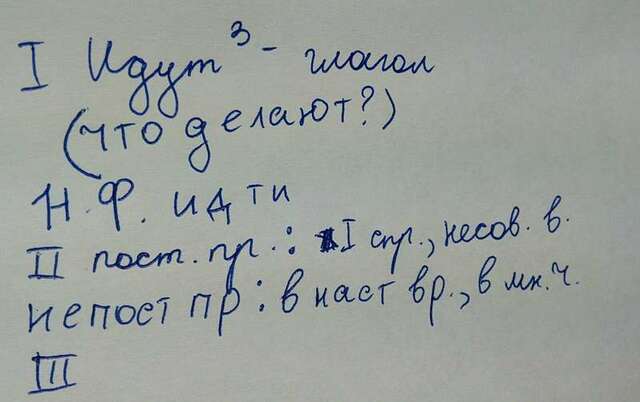 I Идут³ - глагол
(что делают?)
Н.Ф. идти
II пост. пр.: I спр., несов. в.
непост пр: в наст вр., в мн. ч.
III